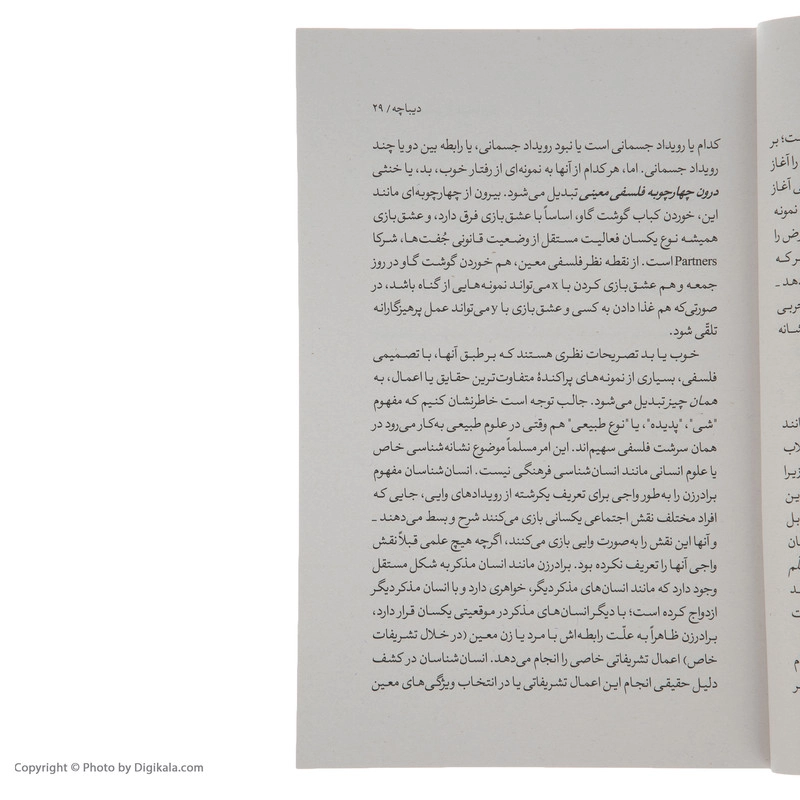 دیباچه / ۲۹
کدام یا رویداد جسمانی است یا نبود رویداد جسمانی، یا رابطه بین دو یا چند
رویداد جسمانی. اما، هر کدام از آنها به نمونه‌ای از رفتار خوب، بد، یا خنثی
درون چهارچوبه فلسفی معینی تبدیل می‌شود. بیرون از چهارچوبه‌ای مانند
این، خوردن کباب گوشت گاو، اساساً با عشق‌بازی فرق دارد، و عشق‌بازی
همیشه نوع یکسان فعالیت مستقل از وضعیت قانونی جُفت‌ها، شرکا
Partners است. از نقطه نظر فلسفی معین، هم خوردن گوشت گاو در روز
جمعه و هم عشق‌بازی کردن با x می‌تواند نمونه‌هایی از گناه باشد، در
صورتی‌که هم غذا دادن به کسی و عشق‌بازی با y می‌تواند عمل پرهیزگارانه
تلقّی شود.
خوب یا بد تصریحات نظری هستند که بر طبق آنها، با تصمیمی
فلسفی، بسیاری از نمونه‌های پراکندهٔ متفاوت‌ترین حقایق یا اعمال، به
همان چیز تبدیل می‌شود. جالب توجه است خاطرنشان کنیم که مفهوم
"شیء"، "پدیده"، یا "نوع طبیعی" هم وقتی در علوم طبیعی به‌کار می‌رود در
همان سرشت فلسفی سهیم‌اند. این امر مسلماً موضوع نشانه‌شناسی خاص
یا علوم انسانی مانند انسان‌شناسی فرهنگی نیست. انسان‌شناسان مفهوم
برادرزن را به‌طور واجی برای تعریف یکرشته از رویدادهای وایی، جایی که
افراد مختلف نقش اجتماعی یکسانی بازی می‌کنند شرح و بسط می‌دهند ـ
و آنها این نقش را به‌صورت وایی بازی می‌کنند، اگرچه هیچ علمی قبلاً نقش
واجی آنها را تعریف نکرده بود. برادرزن مانند انسان مذکر به شکل مستقل
وجود دارد که مانند انسان‌های مذکر دیگر، خواهری دارد و با انسان مذکر دیگر
ازدواج کرده است؛ با دیگر انسان‌های مذکر در موقعیتی یکسان قرار دارد،
برادرزن ظاهراً به علّت رابطه‌اش با مرد یا زن معین (در خلال تشریفات
خاص) اعمال تشریفاتی خاصی را انجام می‌دهد. انسان‌شناسان در کشف
دلیل حقیقی انجام این اعمال تشریفاتی یا در انتخاب ویژگی‌های معین
Copyright © Photo by Digikala.com